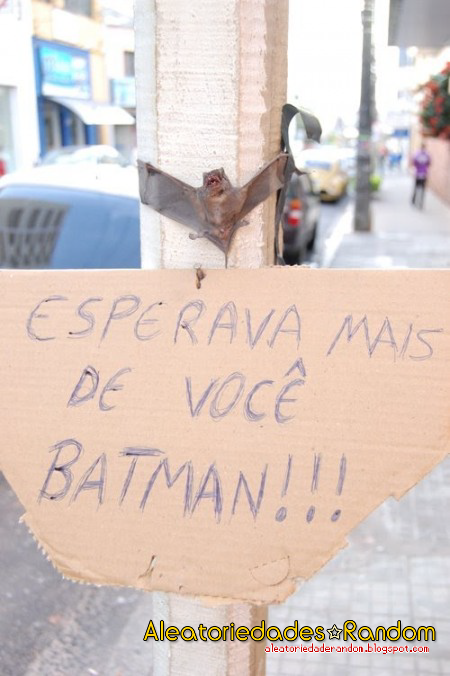 ESPERAVA MAIS
DE VOCÊ
BATMAN!!!
Aleatoriedades☆Random
aleatoriedaderandon.blogspot.com